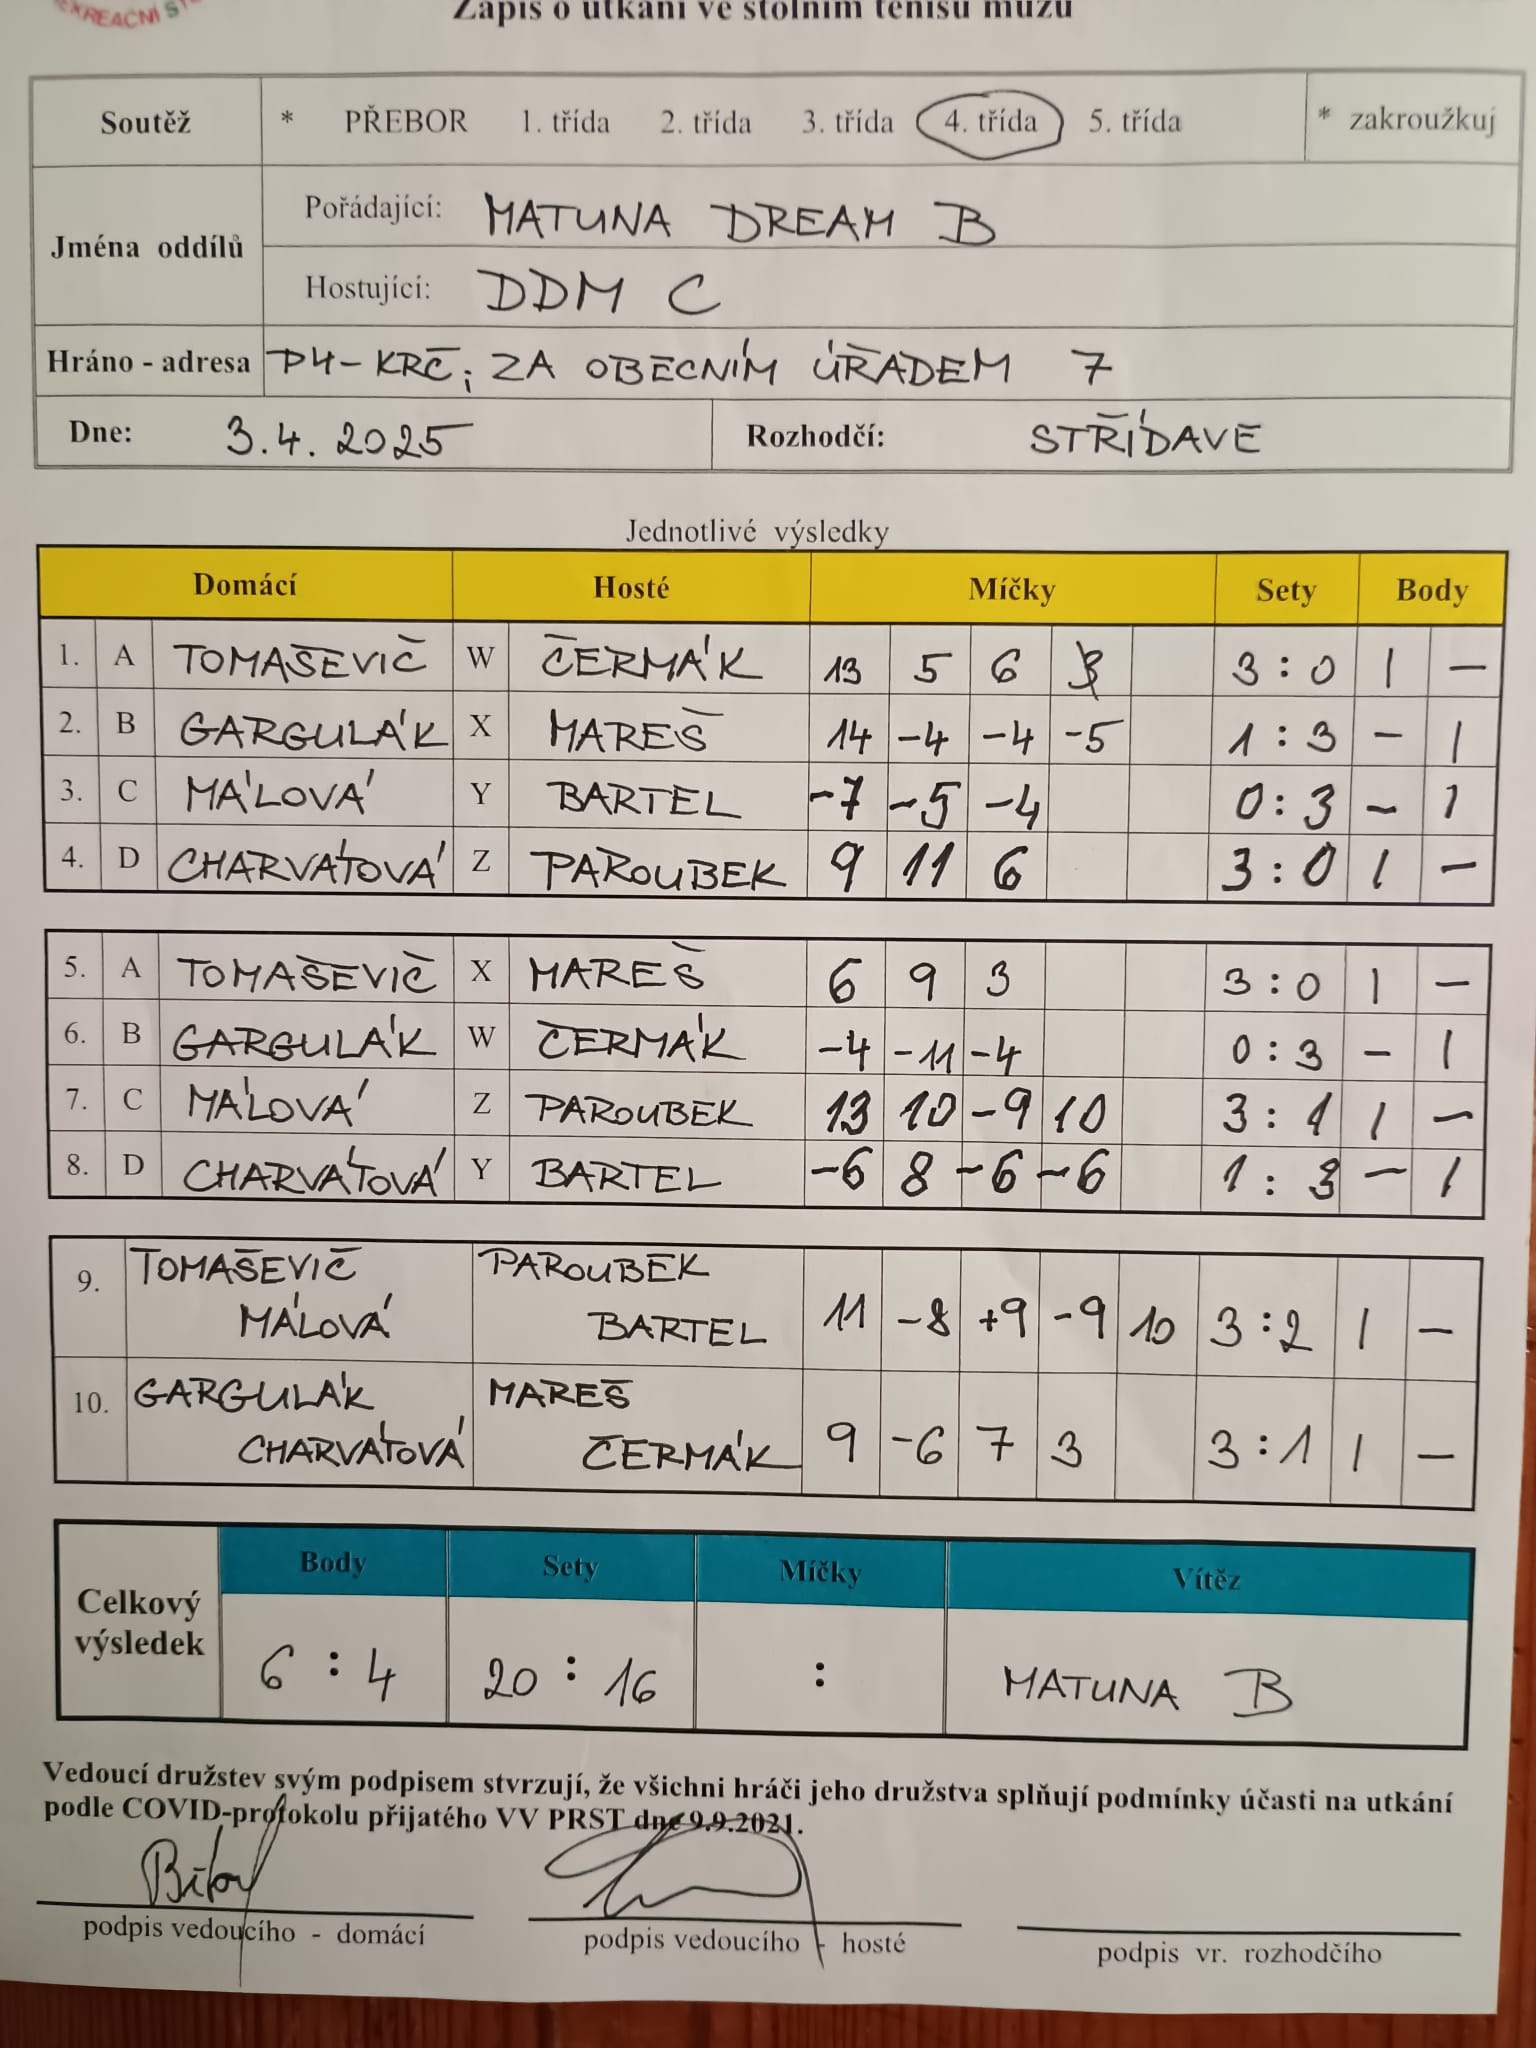 REKREAČNÍ ST
Zápis o utkání ve stolním tenisu mužů
Soutěž * PŘEBOR 1. třída 2. třída 3. třída 4. třída 5. třída * zakroužkuj
Jména oddílů
Pořádající: MATUNA DREAM B
Hostující: DDM C
Hráno - adresa P4-KRČ; ZA OBECNÍM ÚŘADEM 7
Dne: 3.4.2025 Rozhodčí: STŘÍDAVE
Jednotlivé výsledky
Domácí Hosté Míčky Sety Body
1. A TOMAŠEVIČ W ČERMÁK 13 5 6 3:0 1 –
2. B GARGULÁK X MAREŠ 14 -4 -4 -5 1:3 – 1
3. C MÁLOVÁ Y BARTEL -7 -5 -4 0:3 – 1
4. D CHARVÁTOVÁ Z PAROUBEK 9 11 6 3:0 1 –
5. A TOMAŠEVIČ X MAREŠ 6 9 3 3:0 1 –
6. B GARGULÁK W ČERMÁK -4 -11 -4 0:3 – 1
7. C MÁLOVÁ Z PAROUBEK 13 10 -9 10 3:1 1 –
8. D CHARVÁTOVÁ Y BARTEL -6 8 -6 -6 1:3 – 1
9. TOMAŠEVIČ PAROUBEK
MÁLOVÁ BARTEL 11 -8 +9 -9 10 3:2 1 –
10. GARGULÁK MAREŠ
CHARVÁTOVÁ ČERMÁK 9 -6 7 3 3:1 1 –
Celkový výsledek
Body Sety Míčky Vítěz
6:4 20:16 : MATUNA B
Vedoucí družstev svým podpisem stvrzují, že všichni hráči jeho družstva splňují podmínky účasti na utkání
podle COVID-protokolu přijatého VV PRST dne 9.9.2021.
podpis vedoucího - domácí podpis vedoucího - hosté podpis vr. rozhodčího